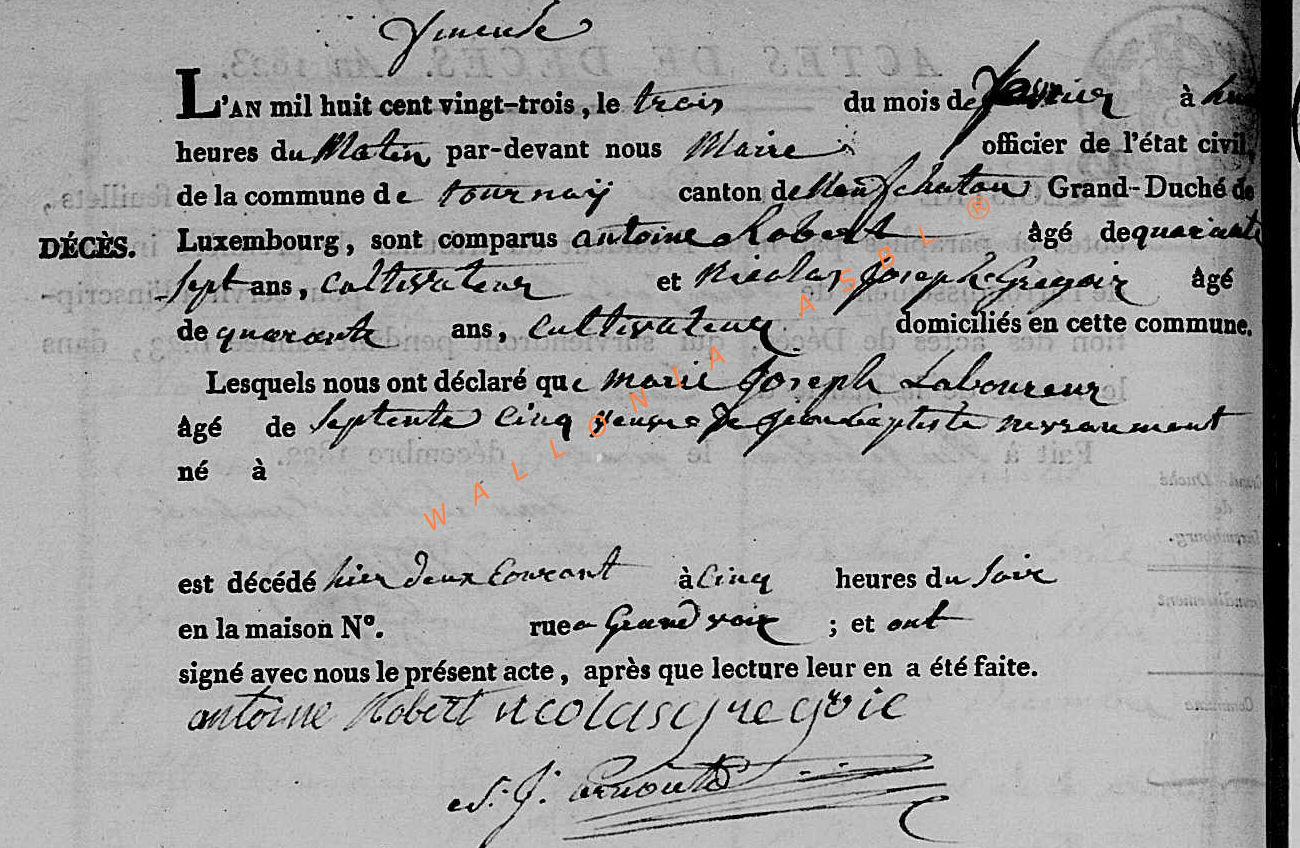 L'AN mil huit cent vingt-trois, le trois du mois de à
heures du Matin par-devant nous Maire officier de l'état civil,
de la commune de tournay canton de Neufchateau Grand-Duché de
DÉCÈS.
Luxembourg, sont comparus antoine Robert âgé de quarante
sept ans, cultivateur et Nicolas Joseph Gregoir âgé
de quarante ans, cultivateur domiciliés en cette commune.
Lesquels nous ont déclaré que marie Joseph Laboureur
âgé de septente cinq veuve de jean baptiste
né à
est décédé hier deux courant à cinq heures du soir
en la maison N°. rue a Grandvoir ; et ont
signé avec nous le présent acte, après que lecture leur en a été faite.
antoine Robert nicolas gregoie
WALLONIA ASBL ®